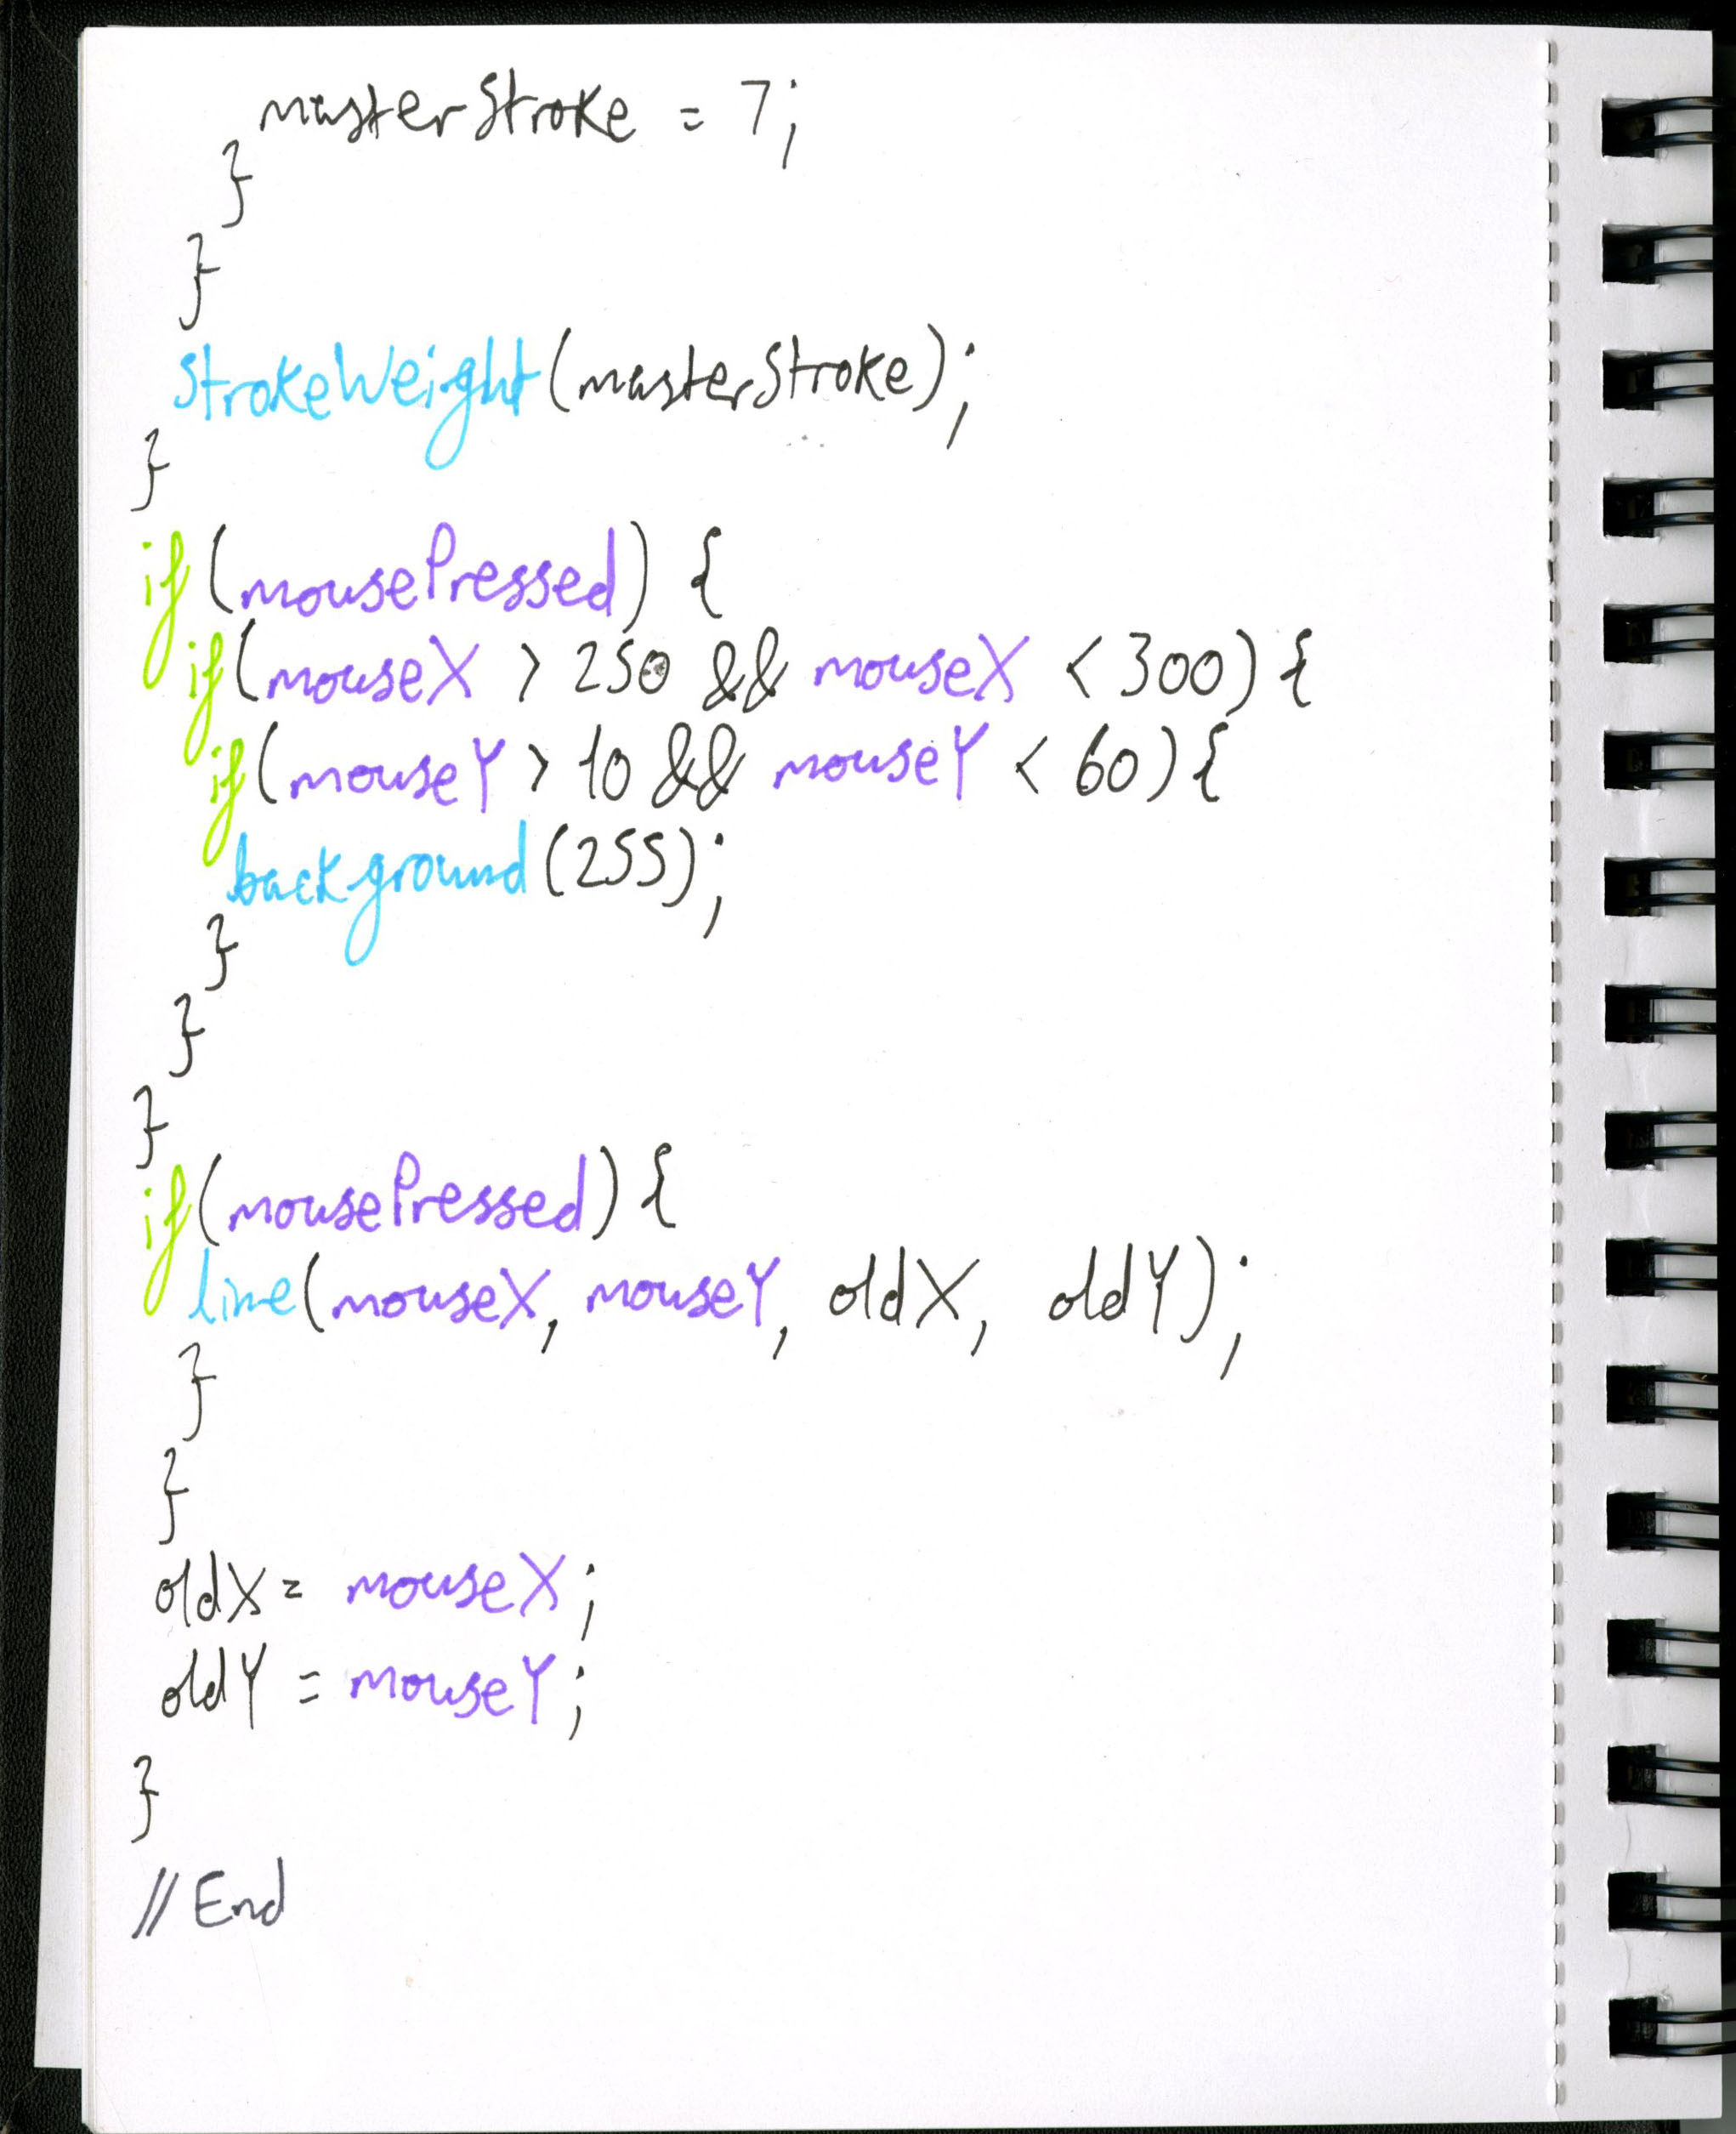 masterStroke = 7;
}
}
strokeWeight(masterStroke);
}
if(mousePressed) {
if(mouseX > 250 && mouseX < 300) {
if(mouseY > 10 && mouseY < 60) {
background(255);
}
}
}
if(mousePressed) {
line(mouseX, mouseY, oldX, oldY);
}
}
oldX = mouseX;
oldY = mouseY;
}
// End